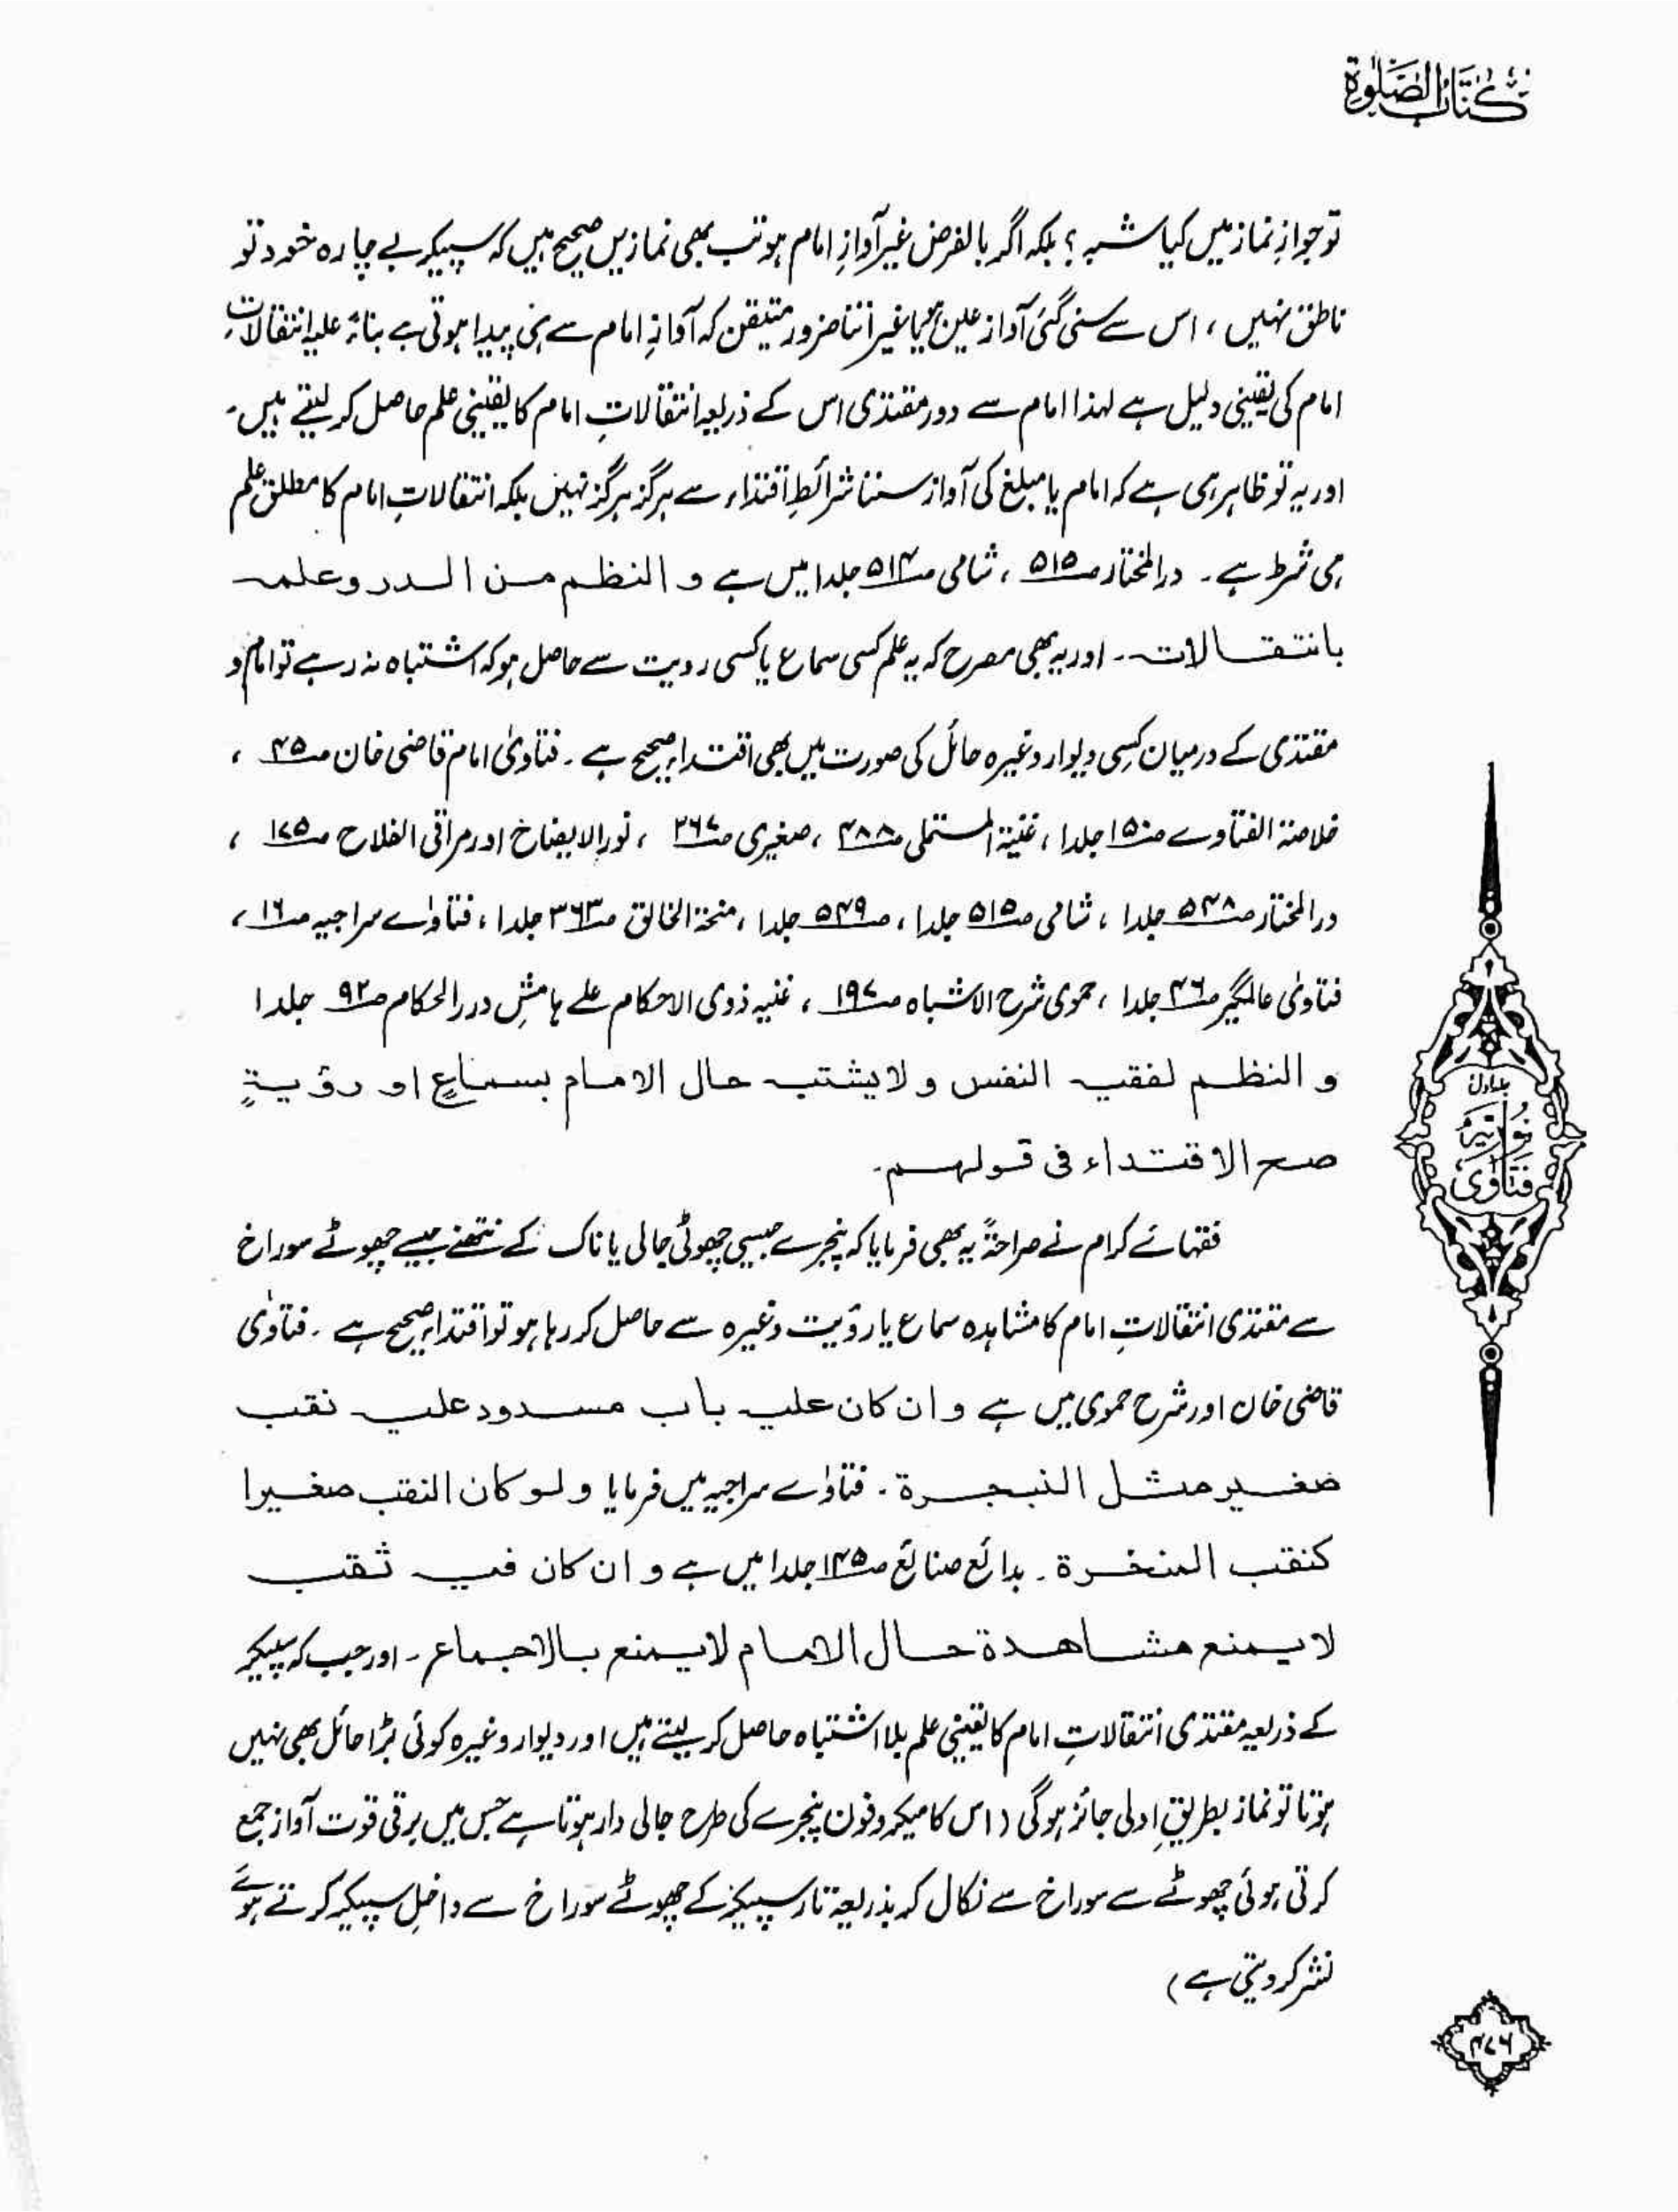 کتاب الصلوٰة
تو جوازِ نماز میں کیا شبہ ؟ بلکہ اگر بالفرض غیر آوازِ امام ہو تب بھی نمازیں صحیح ہیں کہ سپیکر بے چارہ خود تو
ناطق نہیں ، اس سے سنی گئی آواز عین ہو یا غیر اتنا ضرور متیقن کہ آوازِ امام سے ہی پیدا ہوتی ہے بناءً علیہ انتقالاتِ
امام کی یقینی دلیل ہے لہذا امام سے دور مقتدی اس کے ذریعہ انتقالاتِ امام کا یقینی علم حاصل کر لیتے ہیں۔
اور یہ تو ظاہر ہی ہے کہ امام یا مبلغ کی آواز سننا شرائطِ اقتداء سے ہرگز ہرگز نہیں بلکہ انتقالاتِ امام کا مطلق علم
ہی شرط ہے ۔ درالمختار صـ۵۱۵ ، شامی صـ۵۱۴ جلد۱ میں ہے و النظم من الدر و علمہ
بانتقالاتہ ۔ اور یہ بھی مصرح کہ یہ علم کسی سماع یا کسی رویت سے حاصل ہو کہ اشتباہ نہ رہے تو امام و
مقتدی کے درمیان کسی دیوار وغیرہ حائل کی صورت میں بھی اقتداء صحیح ہے ۔ فتاویٰ امام قاضی خان صـ۴۵ ،
خلاصۃ الفتاوے صـ۱۵۰ جلد۱ ، غنیۃ المستملی صـ۴۸۸ ، صغیری صـ۲۶۷ ، نورالایضاح اور مراقی الفلاح صـ۱۷۵ ،
درالمختار صـ۵۴۸ جلد۱ ، شامی صـ۵۱۵ جلد۱ ، صـ۵۴۹ جلد۱ ، منحۃ الخالق صـ۳۶۳ جلد۱ ، فتاوٰے سراجیہ صـ۱۶ ،
فتاویٰ عالمگیر صـ۴۶ جلد۱ ، حموی شرح الاشباہ صـ۱۹۷ ، غنیہ ذوی الاحکام علے ہامشِ دررالحکام صـ۹۲ جلد۱
و النظم لفقیہ النفس و لا یشتبہ حال الامام بسماعٍ او رؤیۃٍ
صح الاقتداء فی قولہم۔
فقہائے کرام نے صراحۃً یہ بھی فرمایا کہ پنجرے جیسی چھوٹی جالی یا ناک کے نتھنے جیسے چھوٹے سوراخ
سے مقتدی انتقالاتِ امام کا مشاہدہ سماع یا رؤیت وغیرہ سے حاصل کر رہا ہو تو اقتداء صحیح ہے ۔ فتاوٰی
قاضی خان اور شرح حموی میں ہے و ان کان علیہ باب مسدود علیہ نقب
صغیر مثل النبجرۃ ۔ فتاوٰے سراجیہ میں فرمایا و لو کان النقب صغیرا
کنقب المنخرۃ ۔ بدائع صنائع صـ۱۴۵ جلد۱ میں ہے و ان کان فیہ ثقب
لا یمنع مشاهدۃ حال الامام لا یمنع بالاجماع ۔ اور جب کہ سپیکر
کے ذریعہ مقتدی انتقالاتِ امام کا یقینی علم بلا اشتباہ حاصل کر لیتے ہیں اور دیوار وغیرہ کوئی بڑا حائل بھی نہیں
ہوتا تو نماز بطریقِ اولی جائز ہو گی (اس کا میکروفون پنجرے کی طرح جالی دار ہوتا ہے جس میں برقی قوت آواز جمع
کرتی ہوئی چھوٹے سے سوراخ سے نکال کر بذریعۃ تار سپیکر کے چھوٹے سوراخ سے داخلِ سپیکر کرتے ہوئے
نشر کر دیتی ہے )
جلد اول
نوریہ
فتاوٰی
۴۷۶